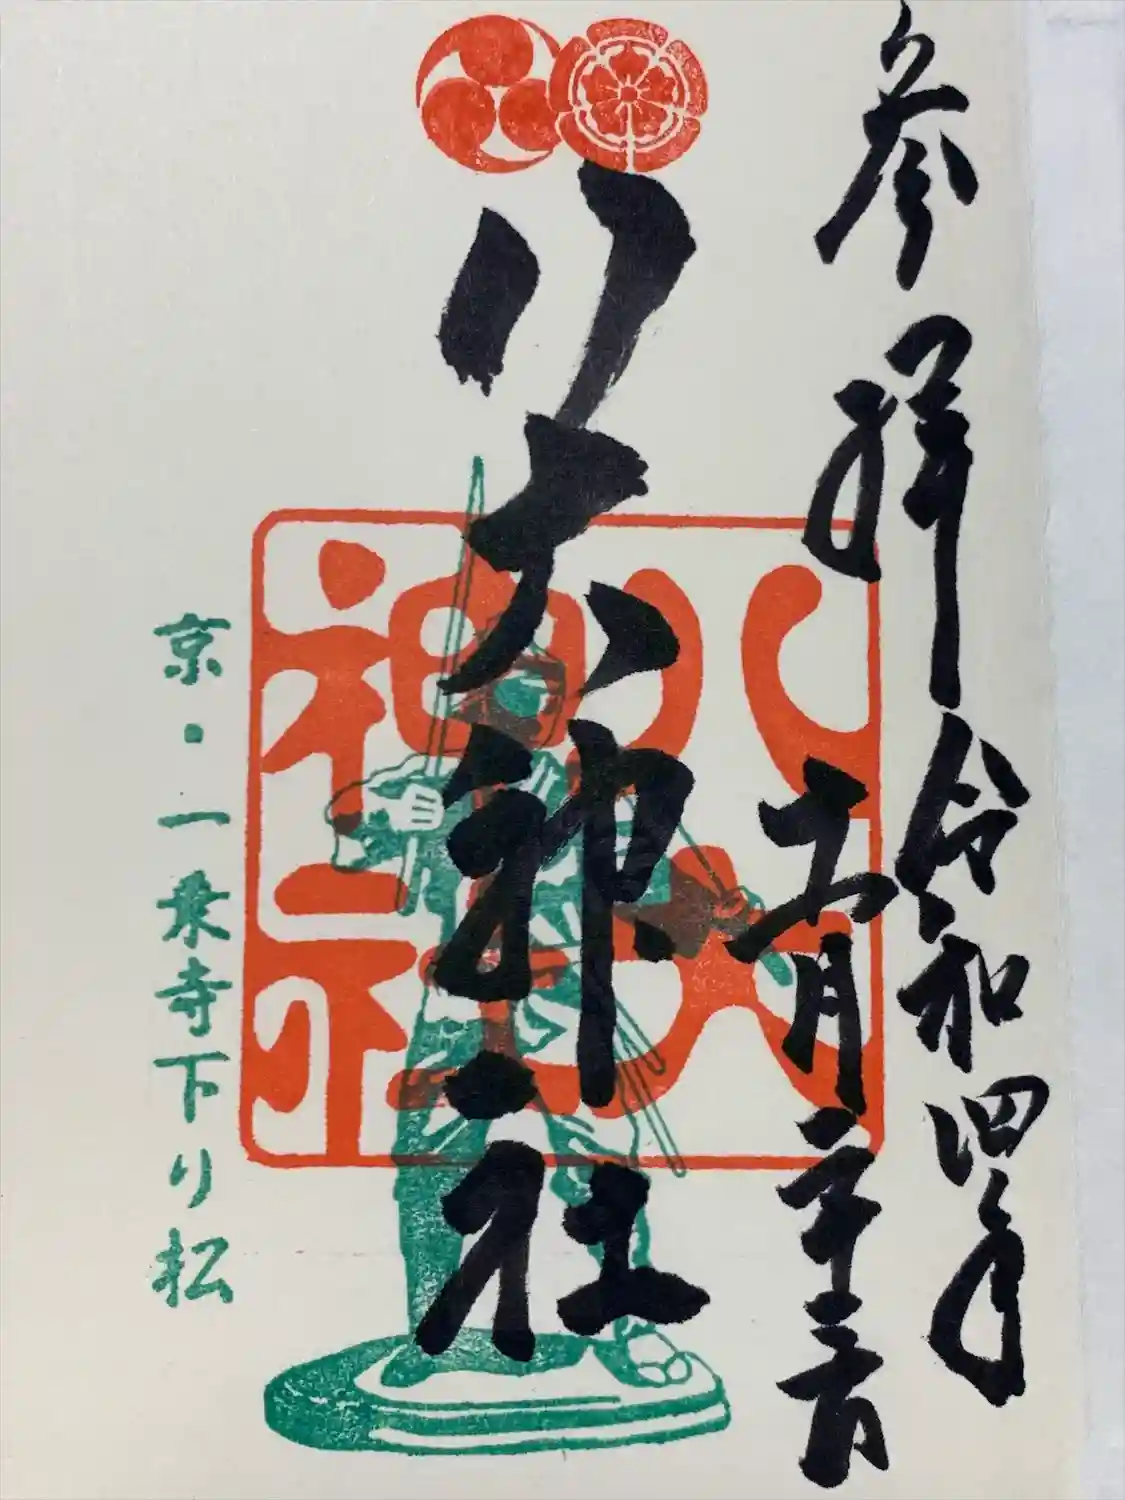 参拝 令和四年
五月二十三日
八大神社
八大
神社
京・一乗寺下り松